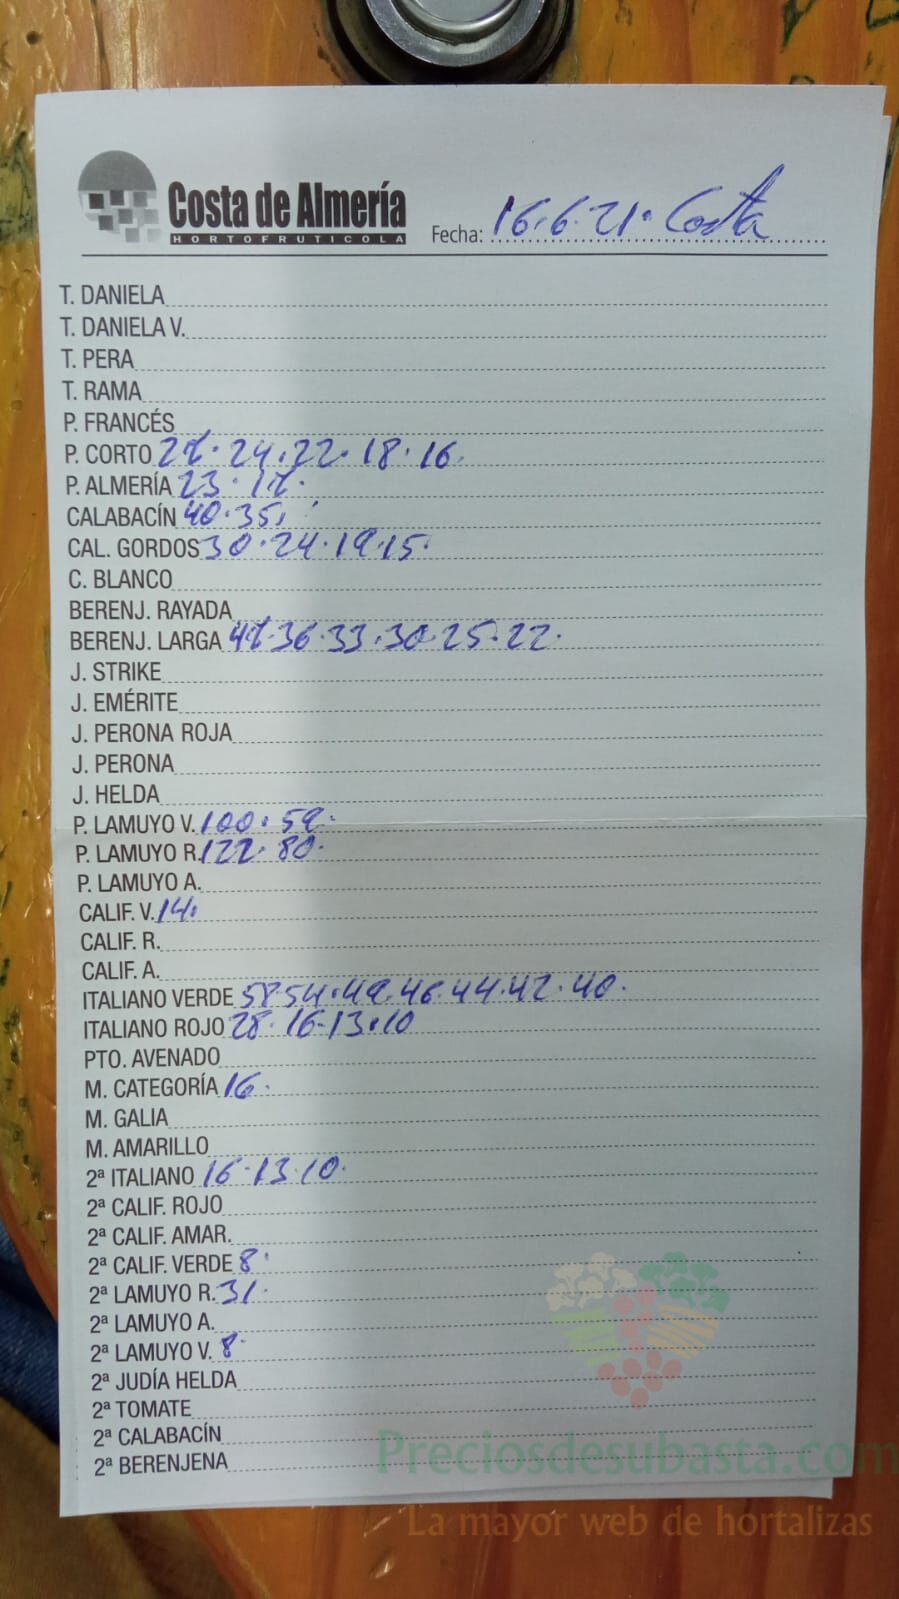 Costa de Almería
HORTOFRUTICOLA
Fecha: 16.6.21. Costa
T. DANIELA
T. DANIELA V.
T. PERA
T. RAMA
P. FRANCÉS
P. CORTO 24.22.18.16.
P. ALMERÍA 23.
CALABACÍN 40.35.
CAL. GORDOS 30.24.19.15.
C. BLANCO
BERENJ. RAYADA
BERENJ. LARGA 36.33.30.25.22.
J. STRIKE
J. EMÉRITE
J. PERONA ROJA
J. PERONA
J. HELDA
P. LAMUYO V. 100.59.
P. LAMUYO R. 122.80.
P. LAMUYO A.
CALIF. V. 14.
CALIF. R.
CALIF. A.
ITALIANO VERDE 54.49.46.44.42.40.
ITALIANO ROJO 28.16.13.10
PTO. AVENADO
M. CATEGORÍA 16.
M. GALIA
M. AMARILLO
2ª ITALIANO 16.13.10.
2ª CALIF. ROJO
2ª CALIF. AMAR.
2ª CALIF. VERDE 8.
2ª LAMUYO R. 31.
2ª LAMUYO A.
2ª LAMUYO V. 8.
2ª JUDÍA HELDA
2ª TOMATE
2ª CALABACÍN
2ª BERENJENA
Preciosdesubasta.com
La mayor web de hortalizas